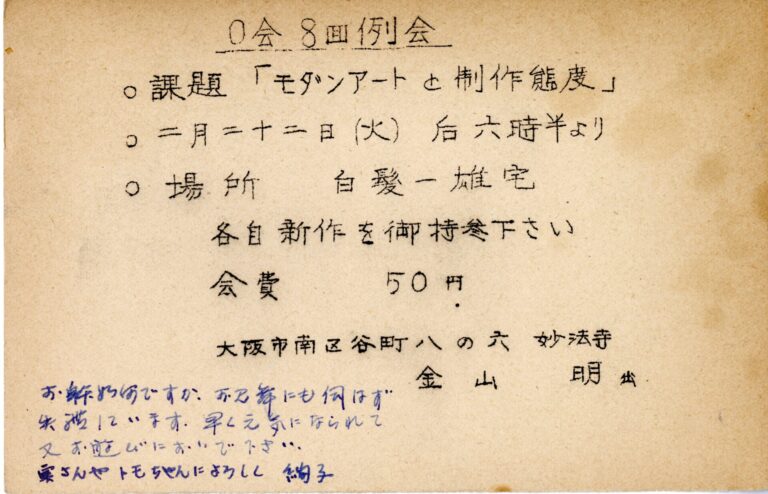 0会 8回例会
○ 課題 「モダンアートと制作態度」
○ 二月二十二日(火) 后六時半より
○ 場所 白髪一雄宅
各自新作を御持参下さい
会費 50円
大阪市南区谷町八の六 妙法寺
金山 明 出
お如何ですか、お見舞にも伺はず
失礼しています。早く元気になられて
又お遊びにおいで下さい。
さんやトモちゃんによろしく 絢子